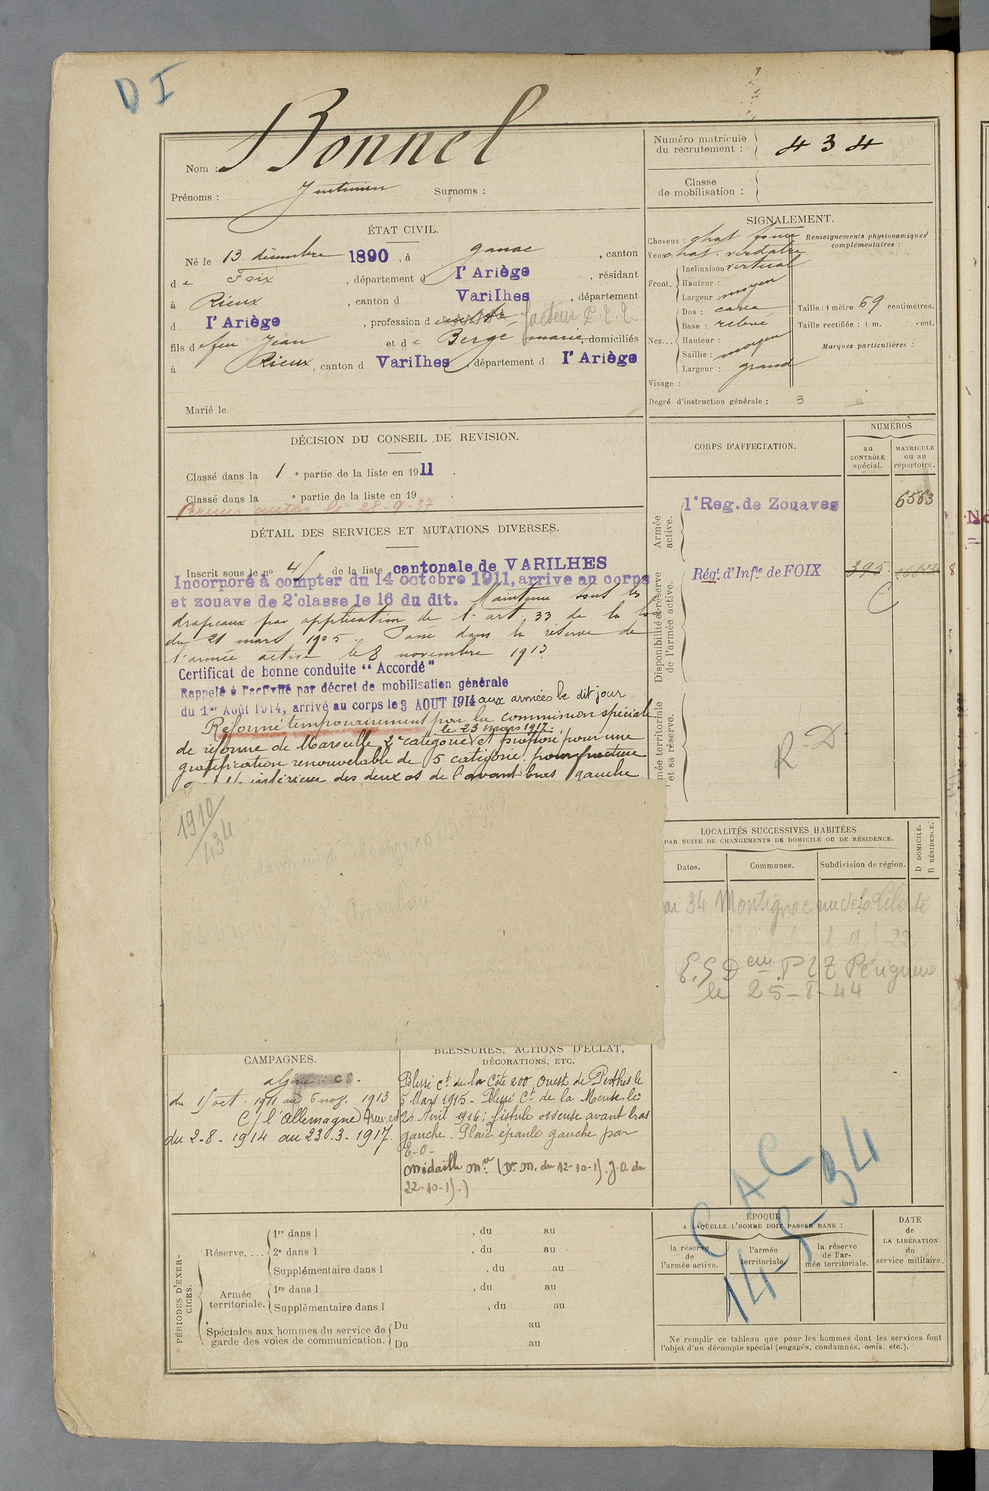 D I
Nom : Bonnel
Prénoms : Justinien Surnoms :
Numéro matricule du recrutement : 434
Classe de mobilisation :
ÉTAT CIVIL.
Né le 13 décembre 1890, à Ganac, canton
de Foix, département d l'Ariège, résidant
à Rieux, canton d Varilhes, département
d l'Ariège, profession d facteur P.T.T.
fils de feu Jean et de Berge marie domiciliés
à Rieux, canton d Varilhes, département d l'Ariège
Marié le
SIGNALEMENT.
Cheveux : chat. foncé
Yeux chat. verdâtre
Renseignements physionomiques complémentaires :
Front, Inclinaison vertical
Hauteur :
Largeur moyen
Nez... Dos : cave
Base : relevé
Hauteur :
Saillie : moyen
Largeur : grand
Taille : 1 mètre 69 centimètres.
Taille rectifiée : 1 m. cent.
Marques particulières :
Visage :
Degré d'instruction générale : 3
DÉCISION DU CONSEIL DE REVISION.
Classé dans la 1e partie de la liste en 1911.
Classé dans la e partie de la liste en 19 .
le 28-9-37
DÉTAIL DES SERVICES ET MUTATIONS DIVERSES.
Inscrit sous le n° 4 de la liste cantonale de VARILHES
Incorporé à compter du 14 octobre 1911, arrive au corps
et zouave de 2e classe le 16 du dit. Maintenu sous les
drapeaux par application de l'art 33 de la loi
du 21 mars 1905. Passé dans la réserve de
l'armée active le 8 novembre 1913
Certificat de bonne conduite "Accordé"
Rappelé à l'activité par décret de mobilisation générale
du 1er Août 1914, arrivé au corps le 3 AOUT 1914 aux armées le dit jour
Réformé temporairement par la commission spéciale
le 23 mars 1917
de réforme de Marseille 2e catégorie et proposé pour une
gratification renouvelable de 5e catégorie pour fracture
des deux os de l'avant bras gauche
1910/434
CORPS D'AFFECTATION.
NUMÉROS
au CONTRÔLE spécial.
MATRICULE ou au répertoire.
Armée active.
1e Reg. de Zouaves 6563
Disponibilité et réserve de l'armée active.
Régt. d'Infie de FOIX 395
Armée territoriale et sa réserve.
R.D.
LOCALITÉS SUCCESSIVES HABITÉES
PAR SUITE DE CHANGEMENTS DE DOMICILE OU DE RÉSIDENCE.
Dates. Communes. Subdivision de région. D DOMICILE. R RÉSIDENCE.
34 Montignac
le 25-8-44
CAMPAGNES.
du 15 oct. 1911 au 6 nov. 1913
C/ l'Allemagne
du 2-8-1914 au 23-3-1917.
BLESSURES, ACTIONS D'ÉCLAT,
DÉCORATIONS, ETC.
Blessé ct. de la Côte 200 Ouest de Perthes le
5 Mars 1915. Blessé ct. de la Meuse le
24 Avril 1916 ; fistule osseuse avant bras
gauche. Plaie épaule gauche par
E.O.
Médaille Mre (D. M. du 12-10-17). J.O. du
22-10-17.)
PÉRIODES D'EXERCICES.
Réserve.... 1re dans l , du au
2e dans l , du au
Supplémentaire dans l , du au
Armée territoriale. 1re dans l , du au
Supplémentaire dans l , du au
Spéciales aux hommes du service de garde des voies de communication. Du au
Du au
CAC
ÉPOQUE
A LAQUELLE L'HOMME DOIT PASSER DANS :
la réserve de l'armée active.
l'armée territoriale.
la réserve de l'armée territoriale.
DATE de LA LIBÉRATION du service militaire.
Ne remplir ce tableau que pour les hommes dont les services font
l'objet d'un décompte spécial (engagés, condamnés, omis, etc.).